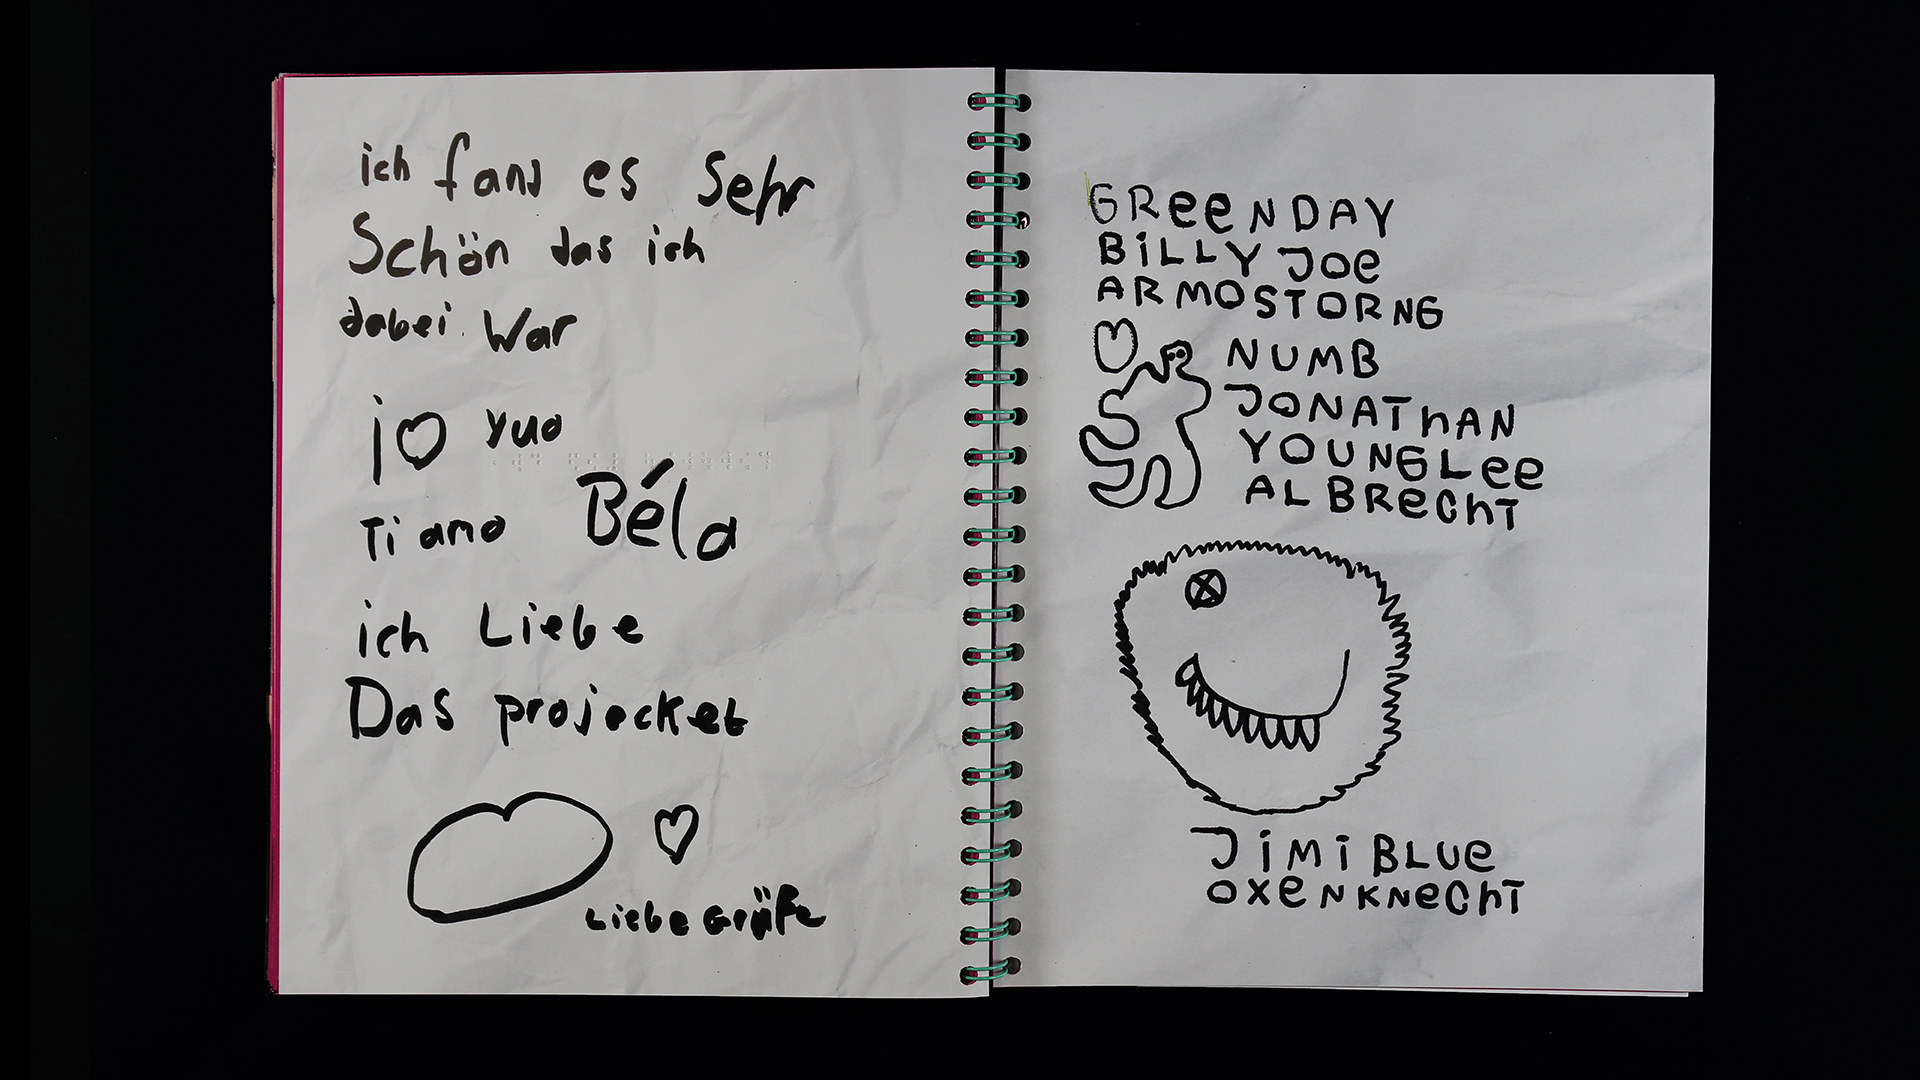 ich fand es sehr
Schön das ich
dabei war
I ♡ yuo
Ti amo Béla
ich Liebe
Das projecket
♡
Liebe Grüße
GReeNDAY
BiLLY JOe
ARMOSTORNG
NUMB
JONAThAN
YOUNGLee
ALBReChT
JiMi BLUe
OXeNKNeChT